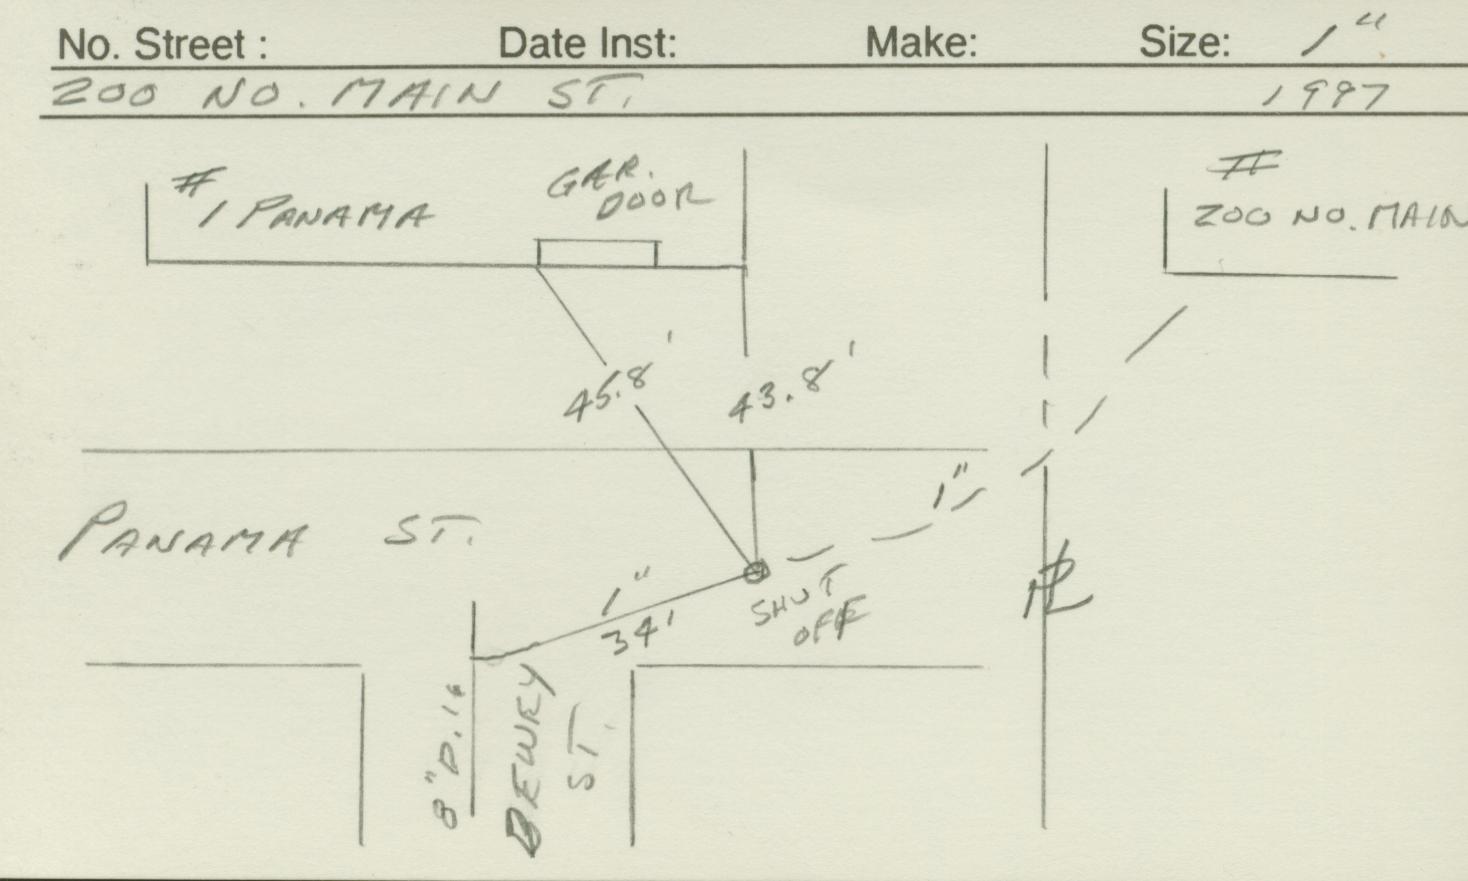 No. Street : Date Inst: Make: Size: 1"
200 NO. MAIN ST. 1997
# 1 PANAMA
GAR.
DOOR
#
200 NO. MAIN
45.8'
43.8'
1"
PANAMA ST.
1"
34'
SHUT
OFF
PL
8" D.I.
DEWEY
ST.